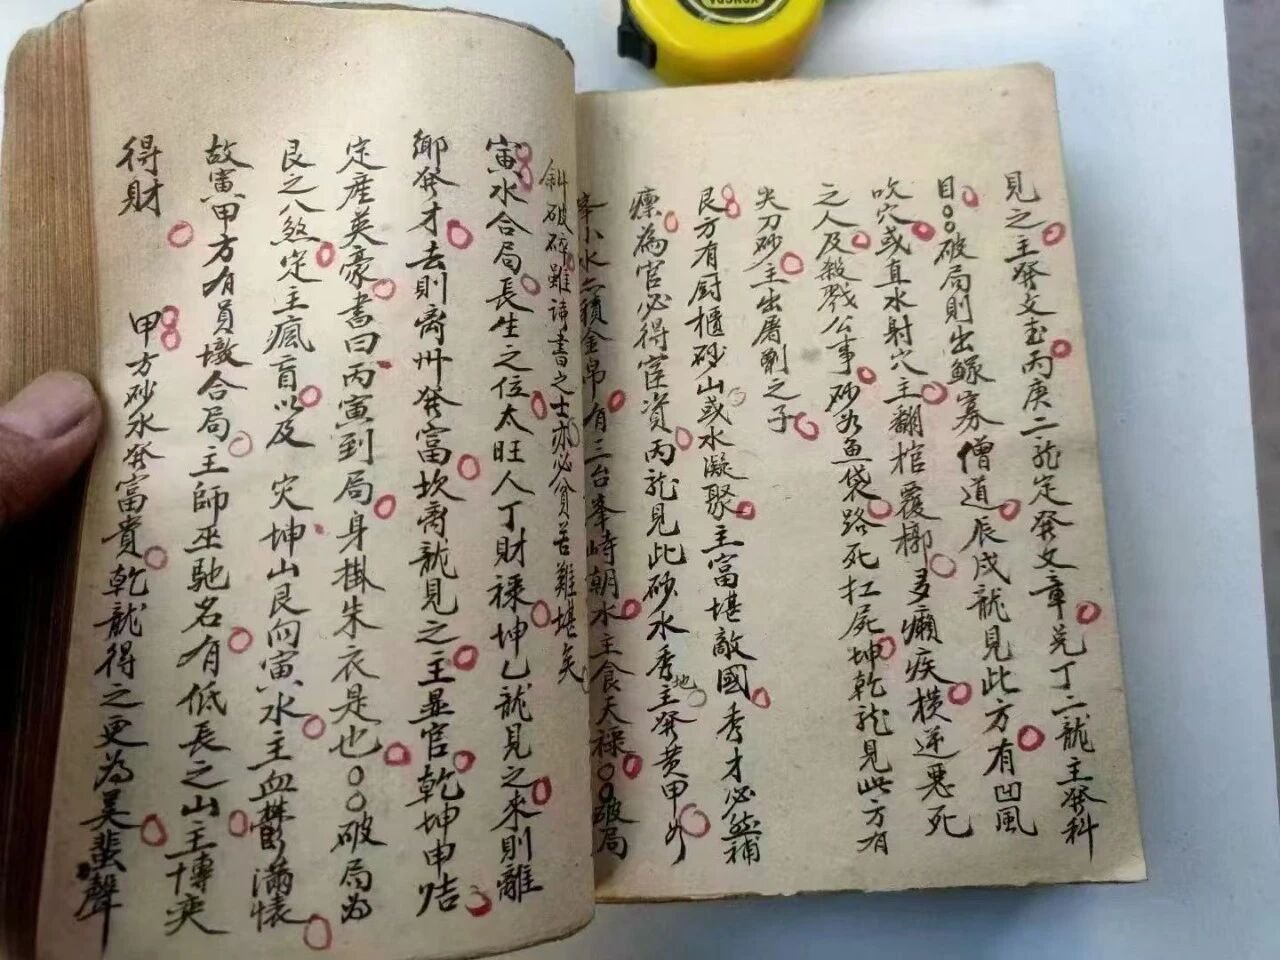 見之主發文��丙庚二龍定發文章兑丁二龍主發科
目○○破局則出鰥寡僧道辰戌龍見此方有凹風
吹穴或直水射穴主翻棺覆槨多癩疾橫逆惡死
之人及殺戮公事砂如魚袋路死扛屍坤乾龍見此方有
尖刀砂主出屠劊之子
艮方有厨櫃砂山或水凝聚主富堪敵國秀才必然補
廪為官必得宦資丙龍見此砂水秀地主發黄甲
峯小水之積金帛有三台峯峙朝水主食天禄○○破局
斜破碎雖讀書之士亦必貧苦難堪矣
寅水合局長生之位太旺人丁財禄坤乙龍見之來則離
鄉發才去則离卅發富坎离龍見之主显官乾坤申
定產英豪書曰丙寅到局身掛朱衣是也○○破局為
艮之八煞定主瘋盲以及災坤山艮向寅水主血鬱滿懷
故寅甲方有員墩合局主師巫馳名有低長之山主博奕
得財
甲方砂水發富貴乾龍得之更為美蜚聲